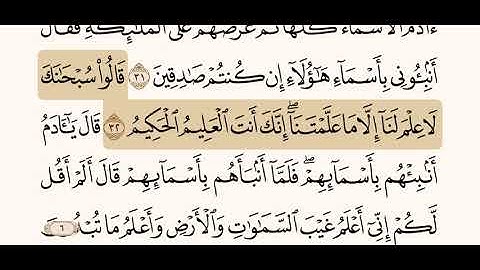 ءَادَمَ ٱلۡأَسۡمَآءَ كُلَّهَا ثُمَّ عَرَضَهُمۡ عَلَى ٱلۡمَلَٰٓئِكَةِ فَقَالَ
أَنۢبِـُٔونِي بِأَسۡمَآءِ هَٰٓؤُلَآءِ إِن كُنتُمۡ صَٰدِقِينَ ٣١ قَالُواْ سُبۡحَٰنَكَ
لَا عِلۡمَ لَنَآ إِلَّا مَا عَلَّمۡتَنَآۖ إِنَّكَ أَنتَ ٱلۡعَلِيمُ ٱلۡحَكِيمُ ٣٢ قَالَ يَٰٓـَٔادَمُ
أَنۢبِئۡهُم بِأَسۡمَآئِهِمۡۖ فَلَمَّآ أَنۢبَأَهُم بِأَسۡمَآئِهِمۡ قَالَ أَلَمۡ أَقُل
لَّكُمۡ إِنِّيٓ أَعۡلَمُ غَيۡبَ ٱلسَّمَٰوَٰتِ وَٱلۡأَرۡضِ وَأَعۡلَمُ مَا
٦